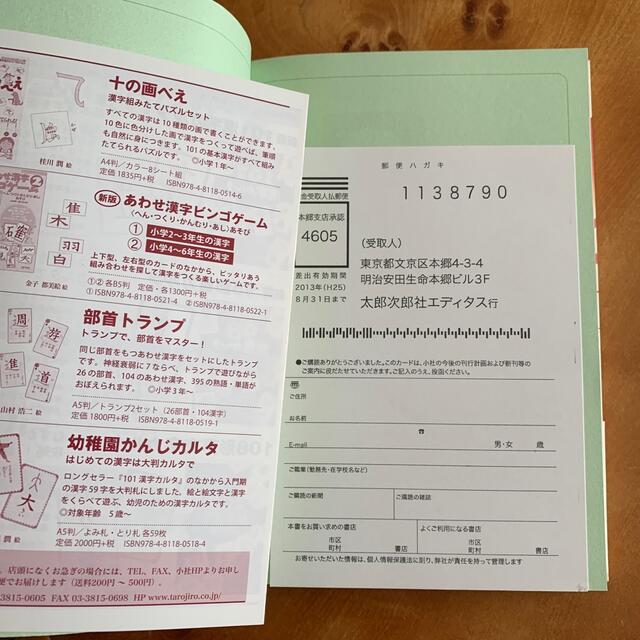 十の画べえ
漢字組みたてパズルセット
すべての漢字は10種類の画で書くことができます。
10色に色分けした画で漢字をつくって遊べば、筆順
も自然に身につきます。101の基本漢字がすべて組み
たてられるパズルです。 ◎小学1年〜
桂川 潤 絵
A4判/カラー8シート組
定価 1835円+税 ISBN978-4-8118-0514-6
わせ漢字
ゴゲーム②
新版 あわせ漢字ビンゴゲーム
〈へん・つくり・かんむり・あし〉あそび
① 小学2〜3年生の漢字
② 小学4〜6年生の漢字
上下型、左右型のカードのなかから、ピッタリあう
組み合わせを探して漢字をつくる楽しいゲームです。
隹
木
羽
白
金子 都美絵 絵
①② 各B5判 定価・各1300円+税
①ISBN978-4-8118-0521-4 ②ISBN978-4-8118-0522-1
部首トランプ
トランプで、部首をマスター!
同じ部首をもつあわせ漢字をセットにしたトランプ
です。神経衰弱に7ならべ、トランプで遊びながら
26の部首、104のあわせ漢字、395の熟語・単語が
おぼえられます。 ◎小学3年〜
週
遊
進
道
山村 浩二 絵
A5判/トランプ2セット(26部首・104漢字)
定価 1800円+税 ISBN978-4-8118-0519-1
幼稚園かんじカルタ
はじめての漢字は大判カルタで
ロングセラー『101漢字カルタ』のなかから入門期
の漢字59字を大判札にしました。絵と絵文字と漢字
をくらべて遊ぶ、幼児のための漢字カルタです。
◎対象年齢 5歳〜
大
潤 絵
A5判/よみ札・とり札 各59枚
定価 2000円+税 ISBN978-4-8118-0518-4
店頭になくお急ぎの場合には、TEL、FAX、小社HPよりお申し
便でお届けします(送料200円 〜 500円)。
3815-0605 FAX 03-3815-0698 HP www.tarojiro.co.jp/
郵便ハガキ
1138790
金受取人払郵便
本郷支店承認
4605
差出有効期間
2013年(H25)
8月31日まで
(受取人)
東京都文京区本郷4-3-4
明治安田生命本郷ビル3F
太郎次郎社エディタス行
●ご購読ありがとうございました。このカードは、小社の今後の刊行計画および新刊等の
ご案内に役だたせていただきます。ご記入のうえ、投函ください。
ご住所
お名前
E-mail 男・女 歳
ご職業(勤務先・在学校名など)
ご購読の新聞 ご購読の雑誌
本書をお買い求めの書店 よくご利用になる書店
市区 市区
町村 書店 町村 書店
お寄せいただいた情報は、個人情報保護法に則り、弊社が責任を持って管理します